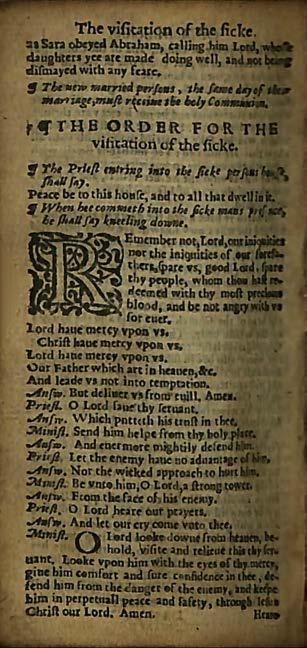 The visitation of the sicke.
as Sara obeyed Abraham, calling him Lord, whose
daughters yee are made doing well, and not being
dismayed with any feare.
¶ The new married persons, the same day of their
marriage, must receiue the holy Communion.
¶ THE ORDER FOR THE
visitation of the sicke.
¶ The Priest entring into the sicke persons house,
shall say.
Peace be to this house, and to all that dwell in it.
¶ When hee commeth into the sicke mans presence,
he shall say kneeling downe.
REmember not, Lord, our iniquities
nor the iniquities of our forefa-
thers, spare vs, good Lord, spare
thy people, whom thou hast re-
deemed with thy most precious
blood, and be not angry with vs
for euer.
Lord haue mercy vpon vs.
Christ haue mercy vpon vs.
Lord haue mercy vpon vs.
Our Father which art in heauen, &c.
And leade vs not into temptation.
Answ. But deliuer vs from euill. Amen.
Priest. O Lord saue thy seruant.
Answ. Which putteth his trust in thee.
Minist. Send him helpe from thy holy place.
Answ. And euermore mightily defend him.
Priest. Let the enemy haue no aduantage of him.
Answ. Nor the wicked approach to hurt him.
Minist. Be vnto him, O Lord, a strong tower.
Answ. From the face of his enemy.
Priest. O Lord heare our prayers.
Answ. And let our cry come vnto thee.
Minist. O Lord looke downe from heauen, be-
hold, visite and relieue this thy ser-
uant. Looke vpon him with the eyes of thy mercy,
giue him comfort and sure confidence in thee, de-
fend him from the danger of the enemy, and keepe
him in perpetuall peace and safety, through Iesus
Christ our Lord. Amen.
Heare